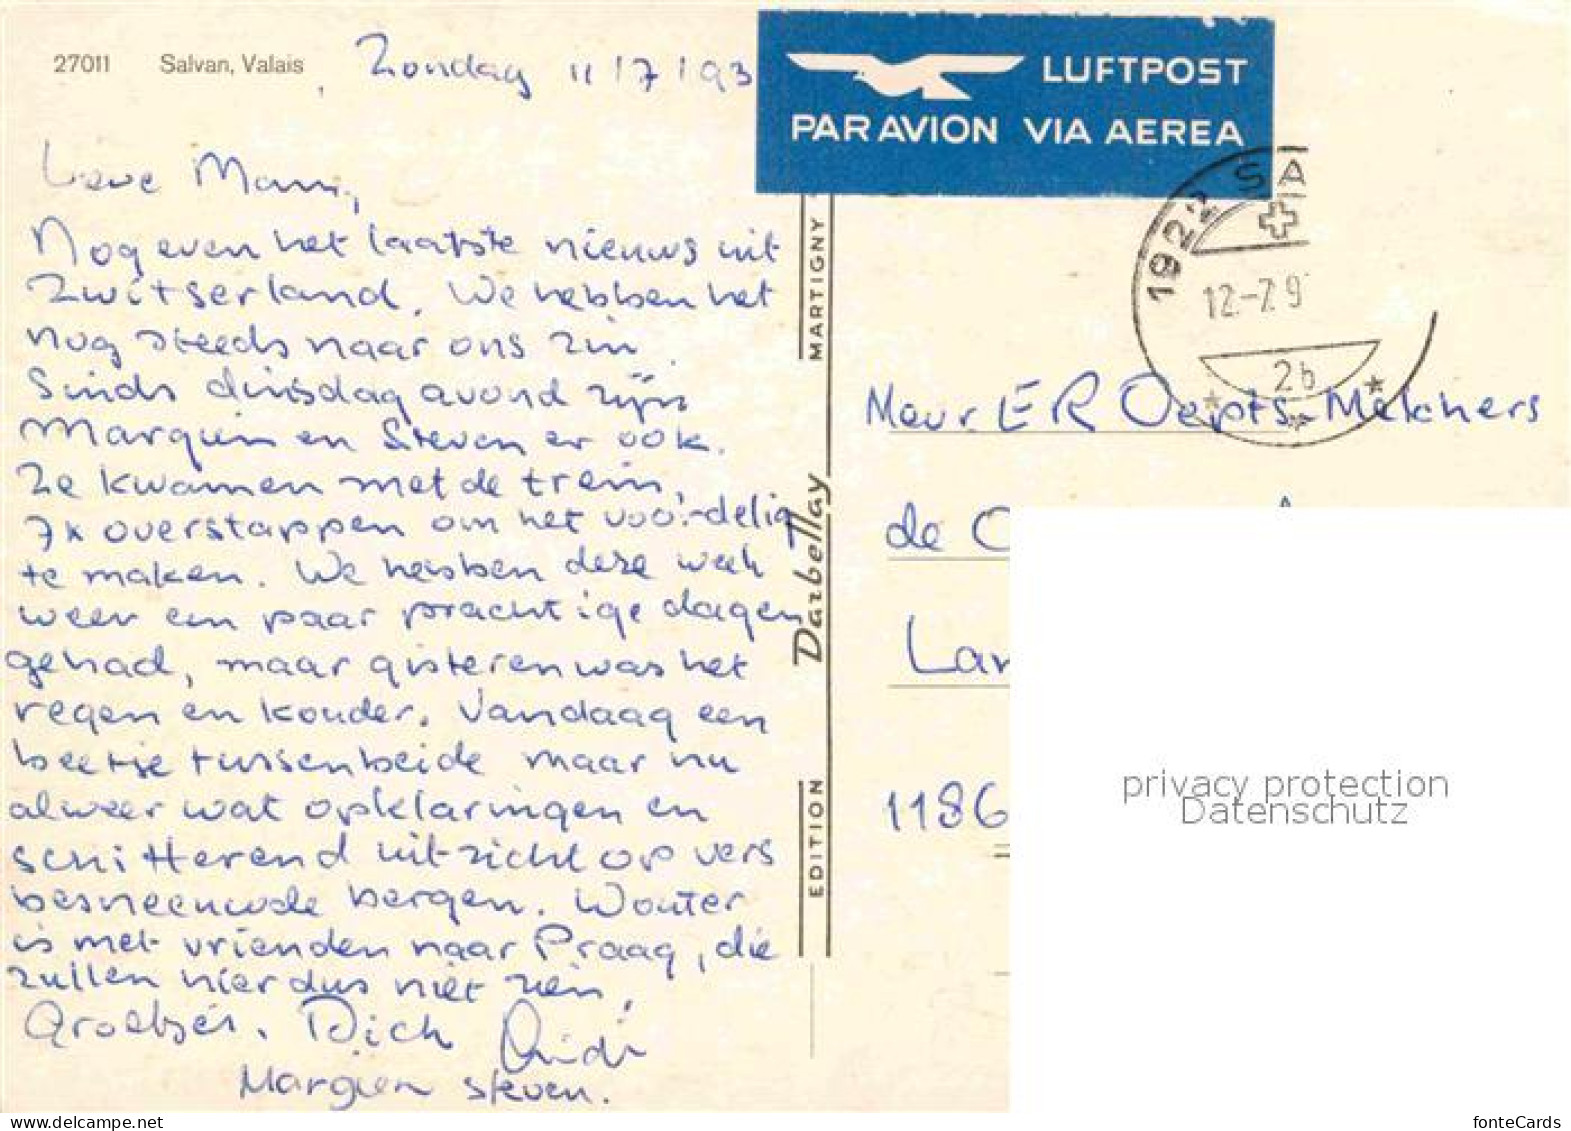 27011 Salvan, Valais
Zondag 11/7/93
LUFTPOST
PAR AVION VIA AEREA
Lieve Mam,
Nog even het laatste nieuws uit
Zwitserland. We hebben het
nog steeds naar ons zin.
Sinds dinsdag avond zijn
Margien en Steven er ook.
Ze kwamen met de trein,
7x overstappen om het voordelig
te maken. We hebben deze week
weer een paar prachtige dagen
gehad, maar gisteren was het
regen en kouder. Vandaag een
beetje tussenbeide maar nu
alweer wat opklaringen en
schitterend uitzicht op vers
besneeuwde bergen. Wouter
is met vrienden naar Praag, die
zullen hier dus niet zien.
Groetjes. Dick
Margien Steven.
EDITION Darbellay MARTIGNY
1922 SA
12.-7.9
2b
Mevr ER Oepts-Melchers
de
Lan
1186
privacy protection
Datenschutz
fonteCards